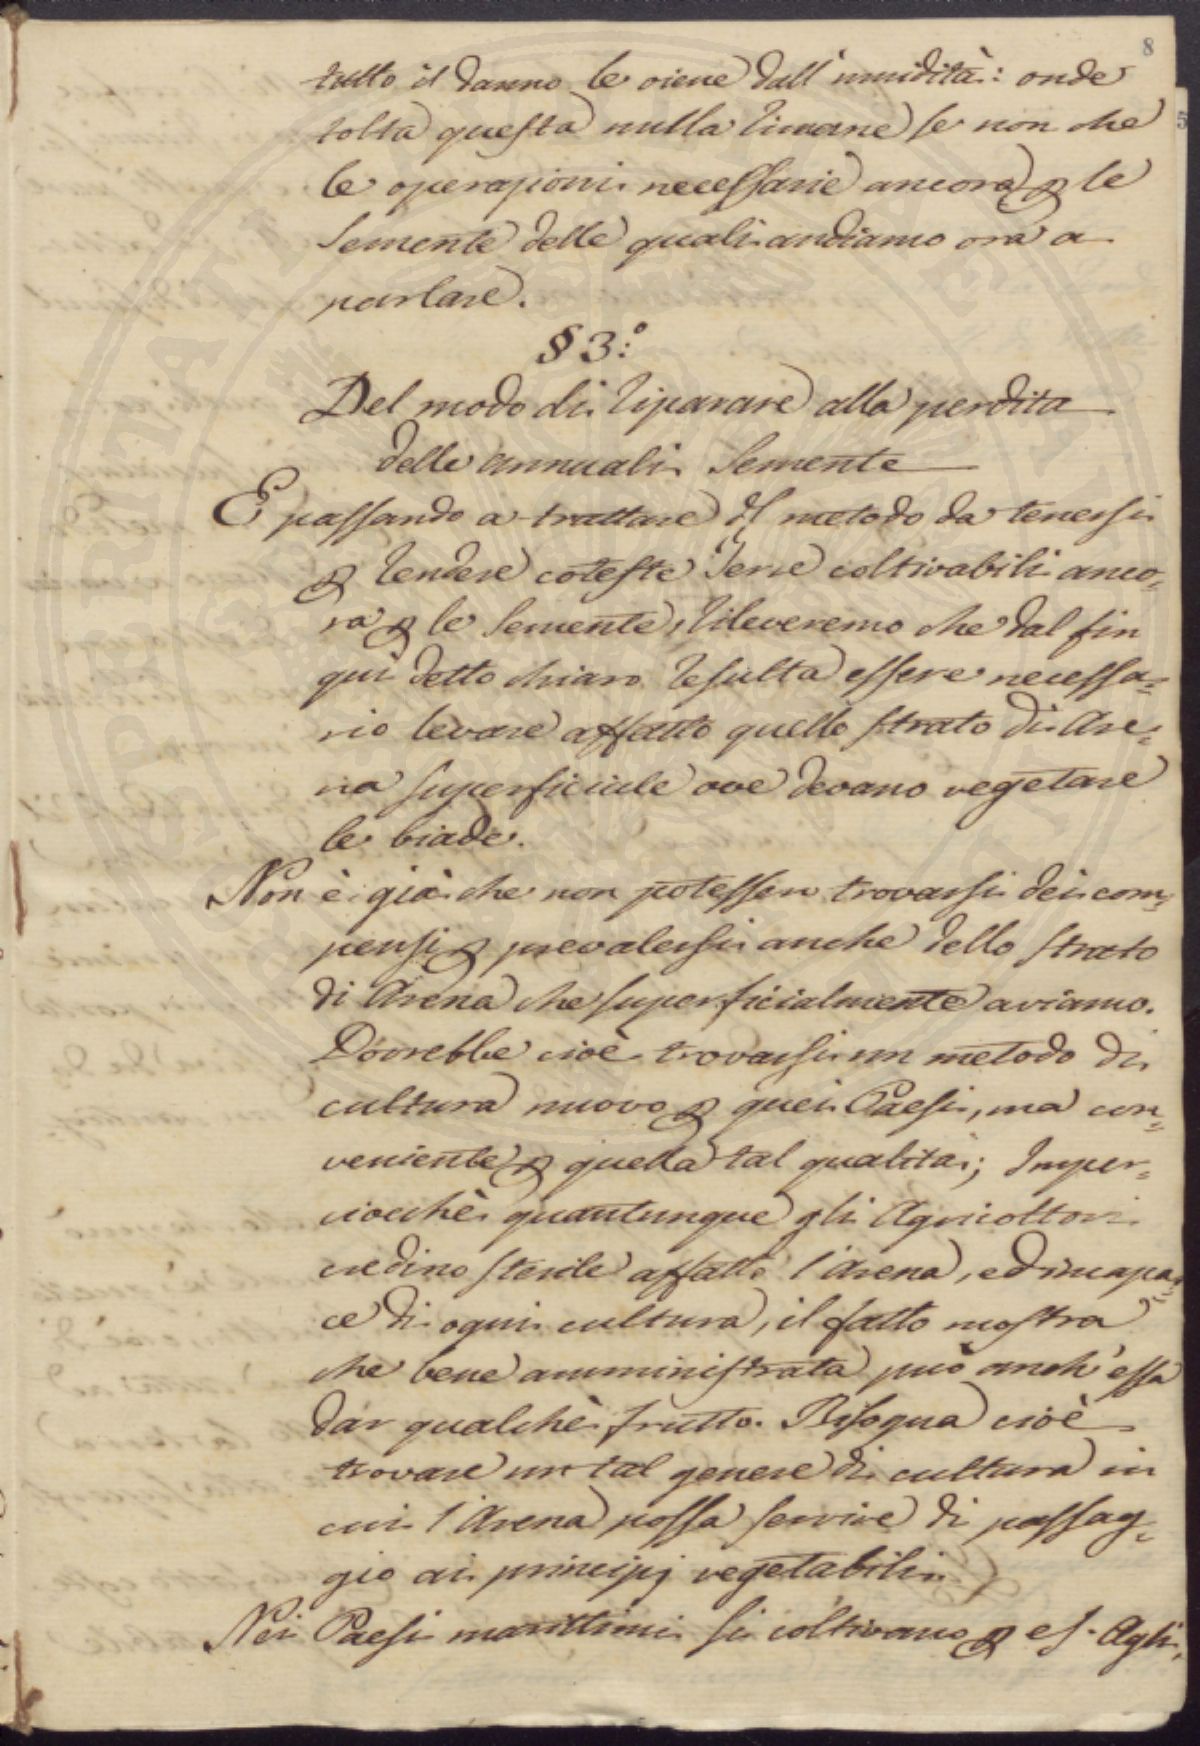 8
tutto il danno le viene dall'umidità: onde
tolta questa nulla rimane se non che
le operazioni necessarie ancora ꝑ le
Semente delle quali andiamo ora a
parlare.
§ 3.º
Del modo di riparare alla perdita
delle annuali Semente
E passando a trattare del metodo da tenersi
ꝑ rendere coteste Terre coltivabili anco=
ra ꝑ le Semente, rileveremo che dal fin
qui detto chiaro resulta essere necessa=
rio levare affatto quello strato di Are=
na superficiale ove devano vegetare
le biade.
Non è già che non potessero trovarsi dei com=
pensi ꝑ prevalersi anche dello strato
di Arena che superficialmente aviamo.
Dovrebbe cioè trovarsi un metodo di
cultura nuovo ꝑ quei Paesi, ma con=
veniente ꝑ quella tal qualità; Imper=
ciocchè quantunque gli Agricoltori
credino sterile affatto l'Arena, ed incapa=
ce di ogni cultura, il fatto mostra
che bene amministrata può anch'essa
dar qualchè frutto. Bisogna cioè
trovare un tal genere di cultura in
cui l'Arena possa servire di passag=
gio ai principj vegetabili.
Nei Paesi marittimi si coltivano ꝑ es. Agli,
5